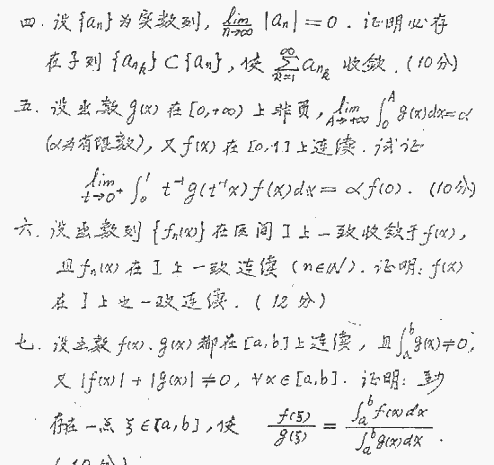 四. 设{aₙ}为实数列, lim_{n→∞} |aₙ| = 0. 证明必存
在子列 {a_{n_k}} ⊂ {aₙ}, 使 ∑_{k=1}^{∞} a_{n_k} 收敛. (10分)
五. 设函数 g(x) 在 [0,+∞) 上非负, lim_{A→+∞} ∫_0^A g(x)dx = α
(α为有限数), 又 f(x) 在 [0,1] 上连续. 试证
lim_{t→0⁺} ∫_0^1 t⁻¹ g(t⁻¹x) f(x)dx = αf(0). (10分)
六. 设函数列 {fₙ(x)} 在区间 I 上一致收敛于 f(x),
且 fₙ(x) 在 I 上一致连续 (n∈N). 证明: f(x)
在 I 上也一致连续. (12分)
七. 设函数 f(x)、g(x) 都在 [a,b] 上连续, 且 ∫_a^b g(x) ≠ 0,
又 |f(x)| + |g(x)| ≠ 0, ∀x∈[a,b]. 证明: 至少
存在一点 ξ∈[a,b], 使 f(ξ)/g(ξ) = ∫_a^b f(x)dx / ∫_a^b g(x)dx.